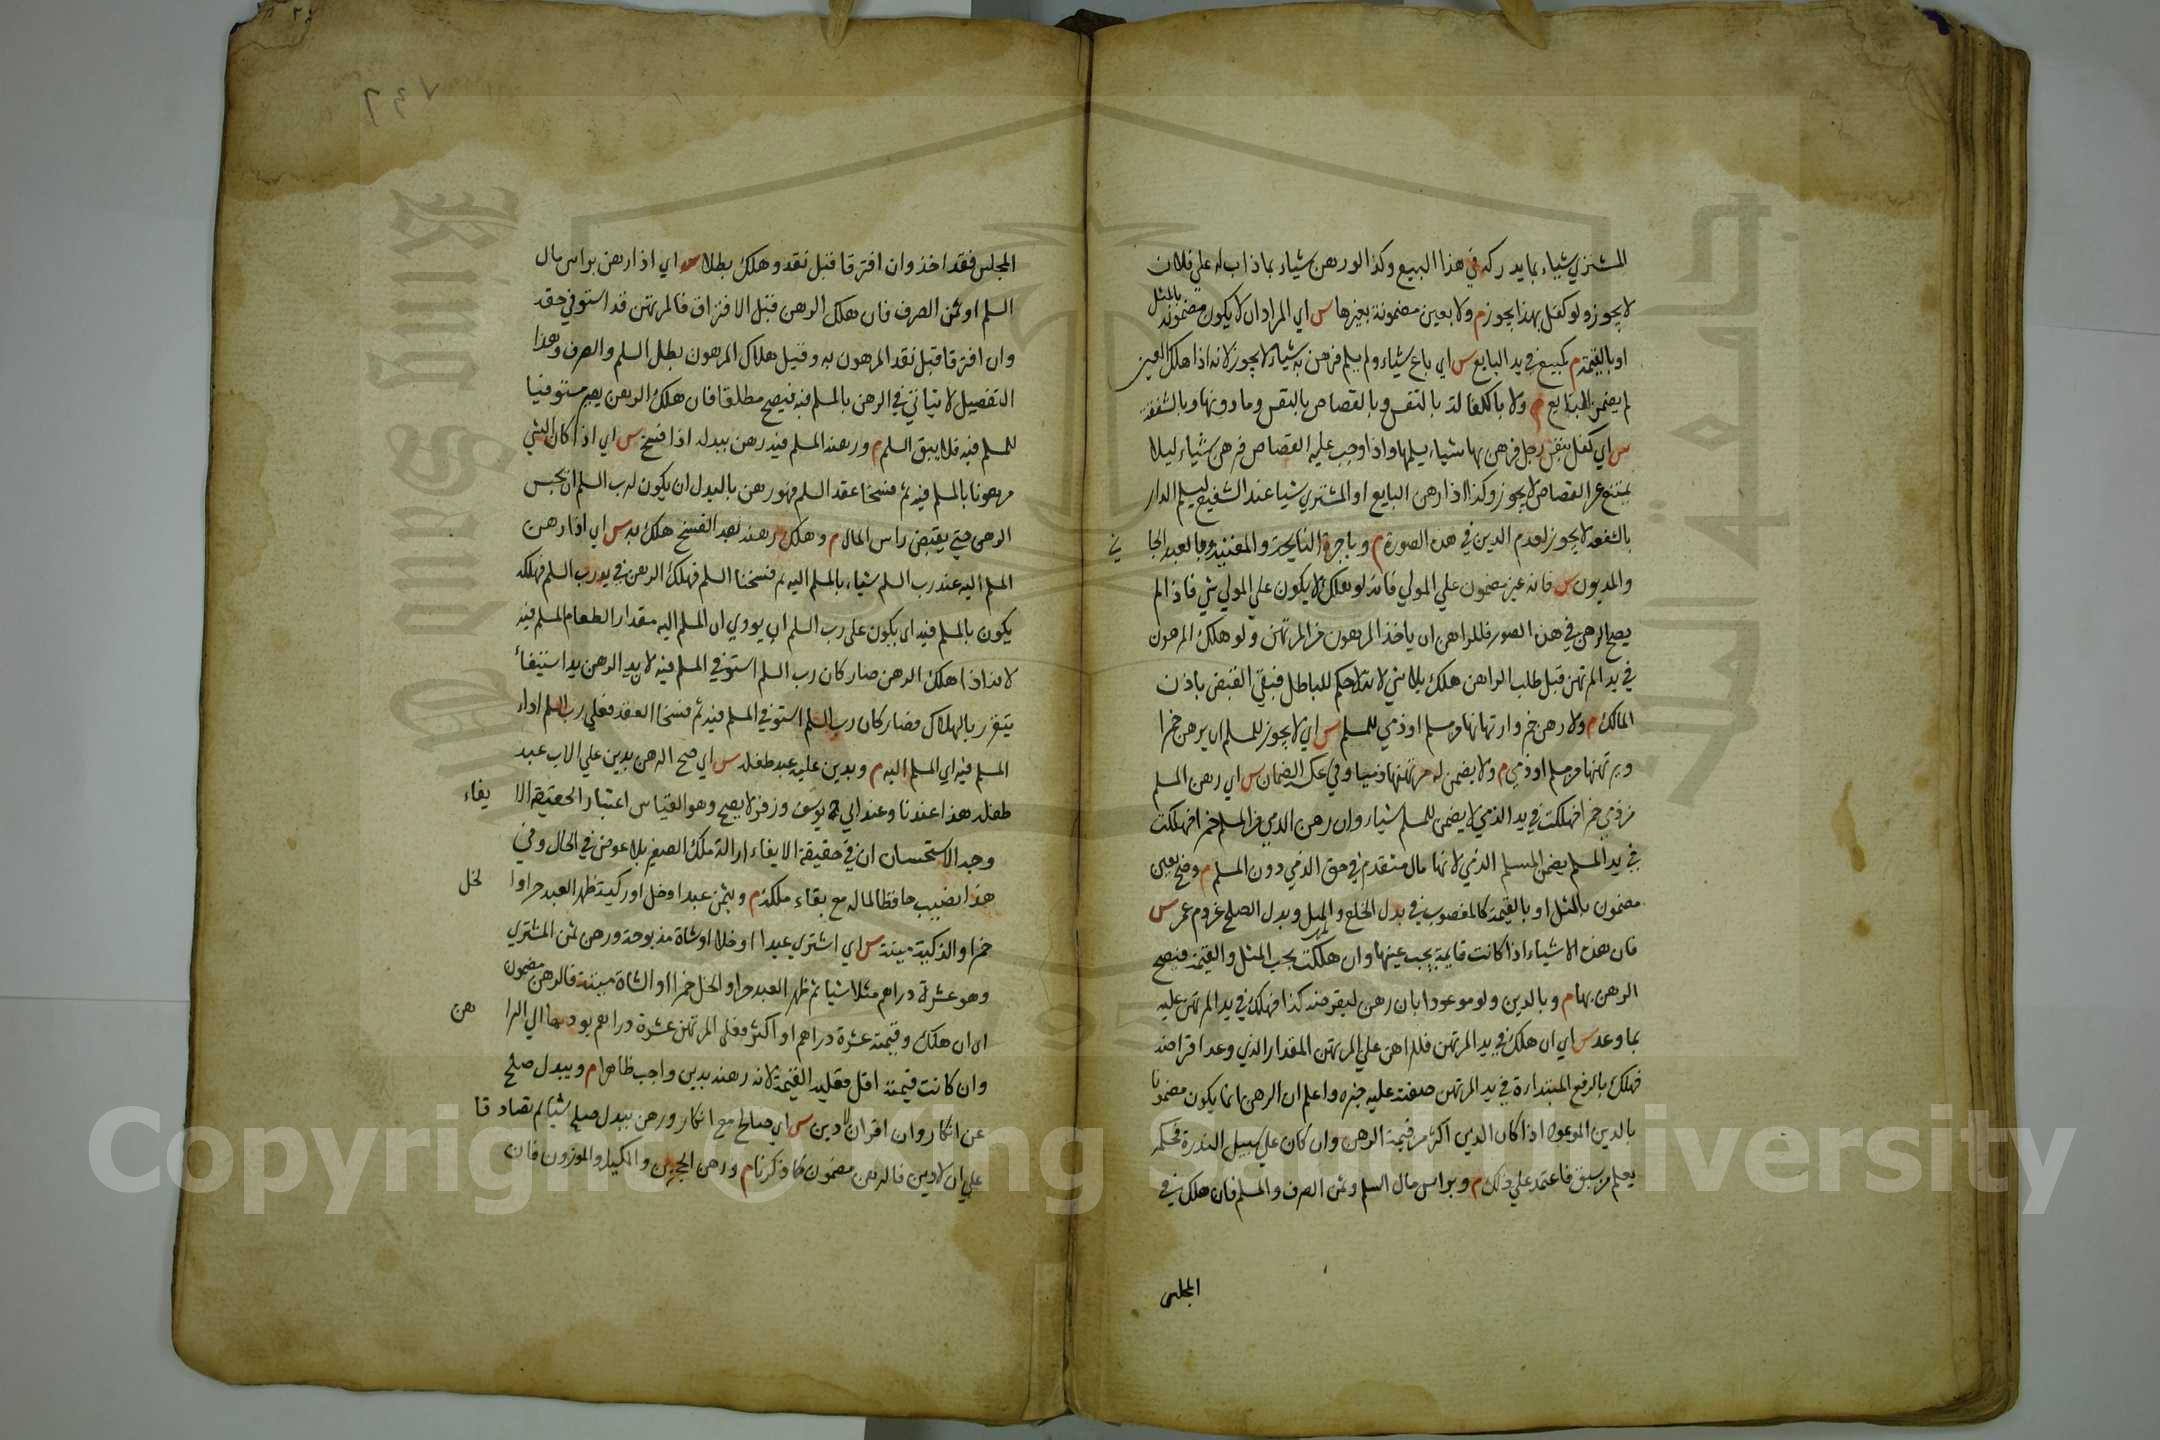 المشتري شياء بما يدركه في هذا البيع وكذا لو رهن شياء بما ذاب له علي فلان
لا يجوز ولو كفل بهذا يجوز م ولا بعين مضمونة بغيرها س اي المراد ان لا يكون مضمونه بالمثل
او بالقيمة م كمبيع في يد البايع س اي باع شياء ولم يسلم فرهن به شياء لا يجوز لانه اذا هلك العين
لم يضمن البايع م ولا بالكفالة بالنفس وبالقصاص بالنفس وما دونها وبالشفعة
س اي كفل بنفس رجل فرهن بها شياء يسلمها واذا وجب عليه القصاص فرهن شياء ليلا
يمتنع عن القصاص لا يجوز وكذا اذا رهن البايع او المشتري شيا عند الشفيع ليسلم الدار
بالشفعه لا يجوز لعدم الدين في هذه الصورة م وباجرة النايحة والمغنية وبالعبد الجا ني
والمديون س فانه غير مضمون علي المولي فانه لو هلك لا يكون علي المولي شي فاذا لم
يصح الرهن في هذه الصور فللراهن ان ياخذ المرهون من المرتهن ولو هلك المرهون
في يد المرتهن قبل طلب الراهن هلك بلا شي لانه لا حكم للباطل فبقي القبض باذن
المالك م ولا رهن خمر وارتهانها من مسلم او ذمي للمسلم س اي لا يجوز للمسلم ان يرهن خمرا
ويرتهنها من مسلم او ذمي م ولا يضمن له مرتهنها ذميا وفي عكسه الضمان س اي رهن المسلم
من ذمي خمرا فهلكت في يد الذمي لا يضمن للمسلم شياء وان رهن الذمي من المسلم خمرا فهلكت
في يد المسلم يضمن المسلم الذمي لانها مال متقدم في حق الذمي دون المسلم م وصح بعين
مضمون بالمثل او بالقيمة كالمغصوب في بدل الخلع والمهر وبدل الصلح عن دم عمد س
فان هذه الاشياء اذا كانت قايمة يجب عينها وان هلكت يجب المثل والقيمة فيصح
الرهن بها م وبالدين ولو موعودا بان رهن ليقرضه كذا فهلك في يد المرتهن عليه
بما وعد س اي ان هلك في يد المرتهن فللراهن علي المرتهن المقدار الذي وعد اقراضه
فهلك بالرفع المبتداء رة في يد المرتهن صفته عليه خبره واعلم ان الرهن انما يكون مضمونا
بالدين الموعود اذا كان الدين اكثر من قيمة الرهن وان كان علي سبيل الندرة فحكمه
يعلم مما سبق فاعتمد علي ذلك م وبراس مال السلم وثمن الصرف والمسلم فان هلك في
المجلس
المجلس فقد اخذ وان افترقا قبل نقد وهلك بطلا س اي اذا رهن براس مال
السلم او ثمن الصرف فان هلك الرهن قبل الافتراق فالمرتهن قد استوفي حقه
وان افترقا قبل نقد المرهون به وقبل هلاك المرهون بطل السلم والصرف وهذا
التفصيل لا يتاتي في الرهن بالمسلم فيه فيصح مطلقا فان هلك الرهن يصير مستوفيا
للمسلم فيه فلا يبقي السلم م ورهنه المسلم فيه رهن ببدله اذا فسخ س اي اذا كان الشي
مرهونا بالمسلم فيه ثم فسخا عقد السلم فهو رهن بالبدل ان يكون لرب السلم ان يحبس
الرهن حتي يقبض راس المال م وهلك رهنه بعد الفسخ هلك به س اي اذا رهن
المسلم اليه عند رب السلم شياء بالمسلم اليه ثم فسخنا السلم فهلك الرهن في يد رب السلم فهلكه
يكون بالمسلم فيه اي يكون علي رب السلم ان يودي الي المسلم اليه مقدار الطعام المسلم فيه
لانه اذا هلك الرهن صار كان رب السلم استوفي المسلم فيه لان يد الرهن يد استيفاء
يتقرر بالهلاك فصار كان رب السلم استوفي المسلم فيه ثم فسخا العقد فعلي رب السلم اداء
المسلم فيه اي المسلم اليه م وبدين عليه عبد طفله س اي صح الرهن بدين علي الاب عبد
طفله هذا عندنا وعند ابي يوسف وزفر لا يصح وهو القياس اعتبارا لحقيقة الا يفاء
وجه الاستحسان ان في حقيقة الايفاء ازالة ملك الصغير بلا عوض في الحال وفي
هذا نصيب حافظا لماله مع بقاء ملكه م وبثمن عبد او خل او ذكية ظهر العبد حرا وا لخل
خمرا والذكية ميتة س اي اشتري عبدا او خلا او شاة مذبوحة ورهن ثمن المشتري
وهو عشرة دراهم مثلا شيا ثم ظهر العبد حرا والخل خمرا او الشاة ميتة فالرهن مضمون
اي ان هلك وقيمته عشرة دراهم او اكثر فعلي المرتهن عشرة دراهم يوديها الي الرا هن
وان كانت قيمته اقل فعليه القيمة لانه رهنه بدين واجب ظاهرا م وببدل صلح
عن انكار وان اقر ان لا دين س اي صالح مع انكار ورهن ببدل صلح شيا ثم تصاد قا
علي ان لا دين فالرهن مضمون كما ذكرنا م ورهن الحجرين والمكيل والموزون فان